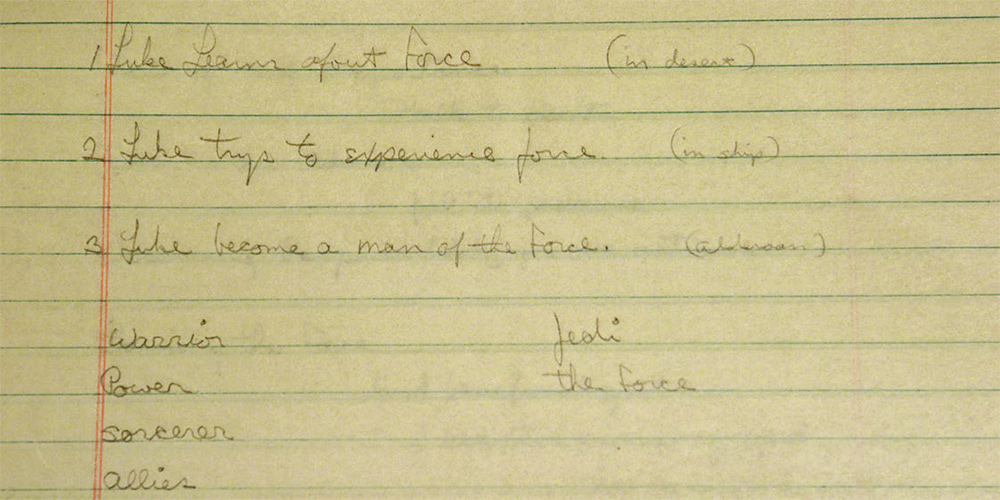 1 Luke Learns about Force (in desert)
2 Luke trys to experience force. (in ship)
3 Luke become a man of the Force. (alderaan)
Warrior Jedi
Power the Force
sorcerer
allies